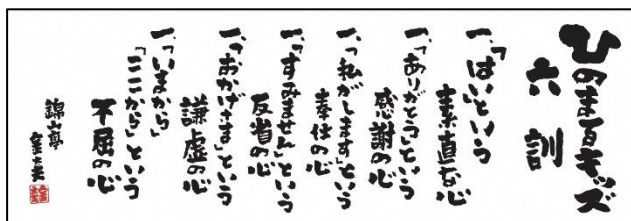 ひのまるキッズ
六訓
一、「はい」という
素直な心
一、「ありがとう」という
感謝の心
一、「私がします」という
奉仕の心
一、「すみません」という
反省の心
一、「おかげさま」という
謙虚の心
一、「いまから」
「ここから」という
不屈の心
錦亭